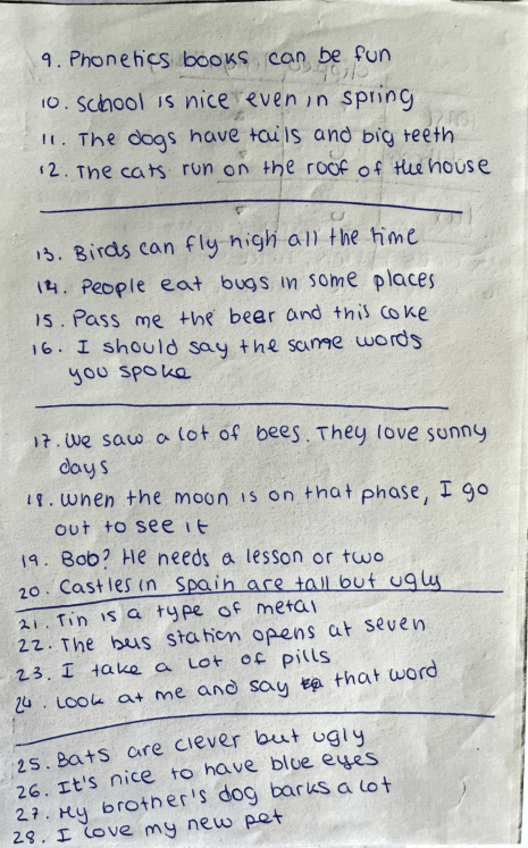 9. Phonetics books can be fun
10. School is nice even in spring
11. The dogs have tails and big teeth
12. The cats run on the roof of the house
13. Birds can fly high all the time
14. People eat bugs in some places
15. Pass me the bear and this coke
16. I should say the same words
you spoke
17. We saw a lot of bees. They love sunny
days
18. When the moon is on that phase, I go
out to see it
19. Bob? He needs a lesson or two
20. Castles in Spain are tall but ugly
21. Tin is a type of metal
22. The bus station opens at seven
23. I take a lot of pills
24. Look at me and say that word
25. Bats are clever but ugly
26. It's nice to have blue eyes
27. My brother's dog barks a lot
28. I love my new pet